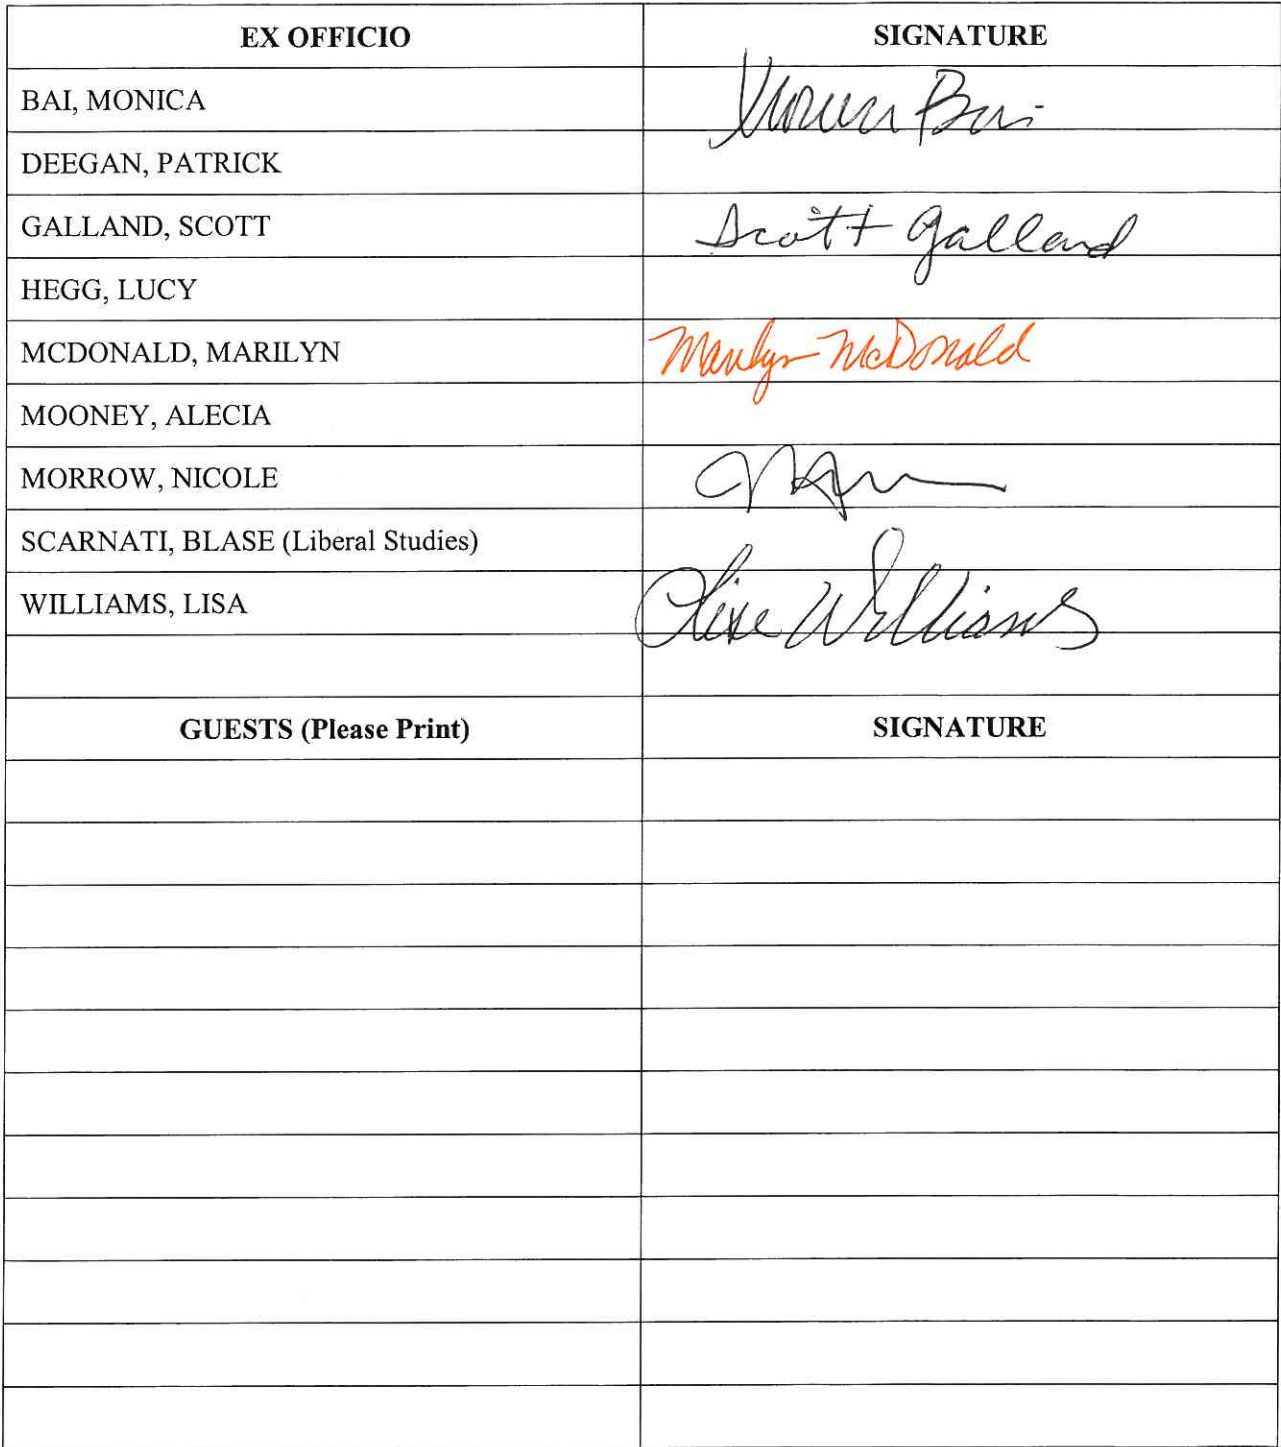 EX OFFICIO SIGNATURE
BAI, MONICA Monica Bai
DEEGAN, PATRICK
GALLAND, SCOTT Scott Galland
HEGG, LUCY
MCDONALD, MARILYN Marilyn McDonald
MOONEY, ALECIA
MORROW, NICOLE
SCARNATI, BLASE (Liberal Studies)
WILLIAMS, LISA Williams
GUESTS (Please Print) SIGNATURE